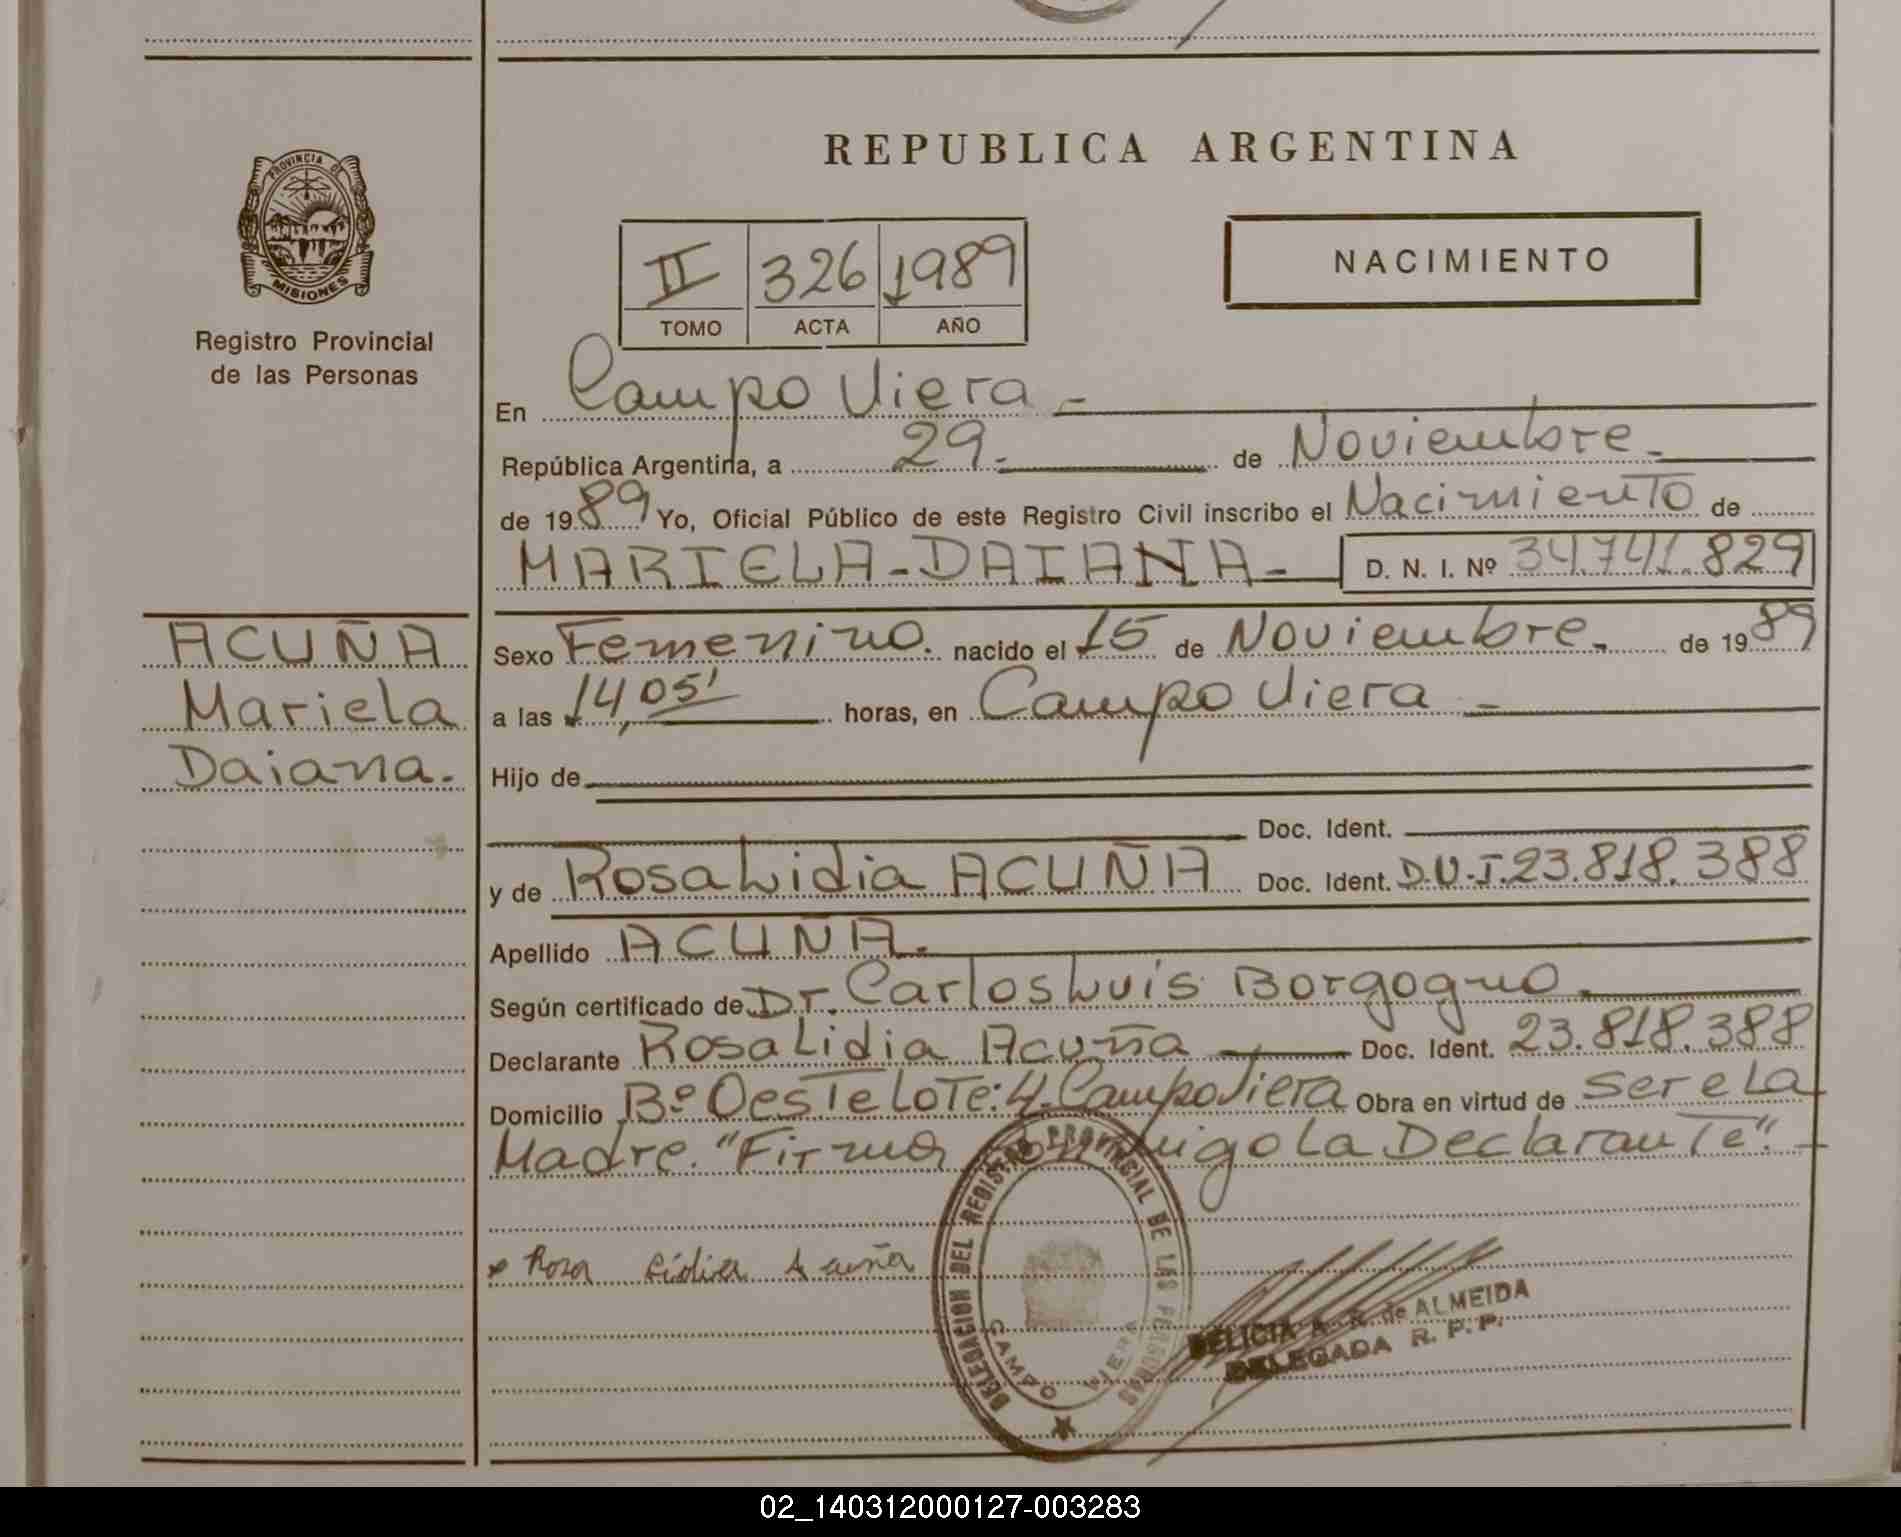 REPUBLICA ARGENTINA
PROVINCIA DE
MISIONES
Registro Provincial
de las Personas
II 326 1989
TOMO ACTA AÑO
NACIMIENTO
En Campo Viera -
República Argentina, a 29. de Noviembre
de 1989 Yo, Oficial Público de este Registro Civil inscribo el Nacimiento de
MARIELA-DAIANA- D. N. I. Nº 34.741.829
ACUÑA
Mariela
Daiana.
Sexo Femenino. nacido el 15 de Noviembre. de 1989
a las 14,05' horas, en Campo Viera -
Hijo de
Doc. Ident.
y de Rosa Lidia ACUÑA Doc. Ident. D.U.I. 23.818.388
Apellido ACUÑA.
Según certificado de Dr. Carlos Luis Borgogno.
Declarante Rosa Lidia Acuña Doc. Ident. 23.818.388
Domicilio Bº Oeste Lote: 4. Campo Viera Obra en virtud de ser e La
Madre. "Firma Conmigo La Declarante". -
x Rosa Lidia Acuña
DELEGACION DEL REGISTRO PROVINCIAL DE LAS PERSONAS
CAMPO VIERA
DELICIA A. R. de ALMEIDA
DELEGADA R. P. P.
02_140312000127-003283